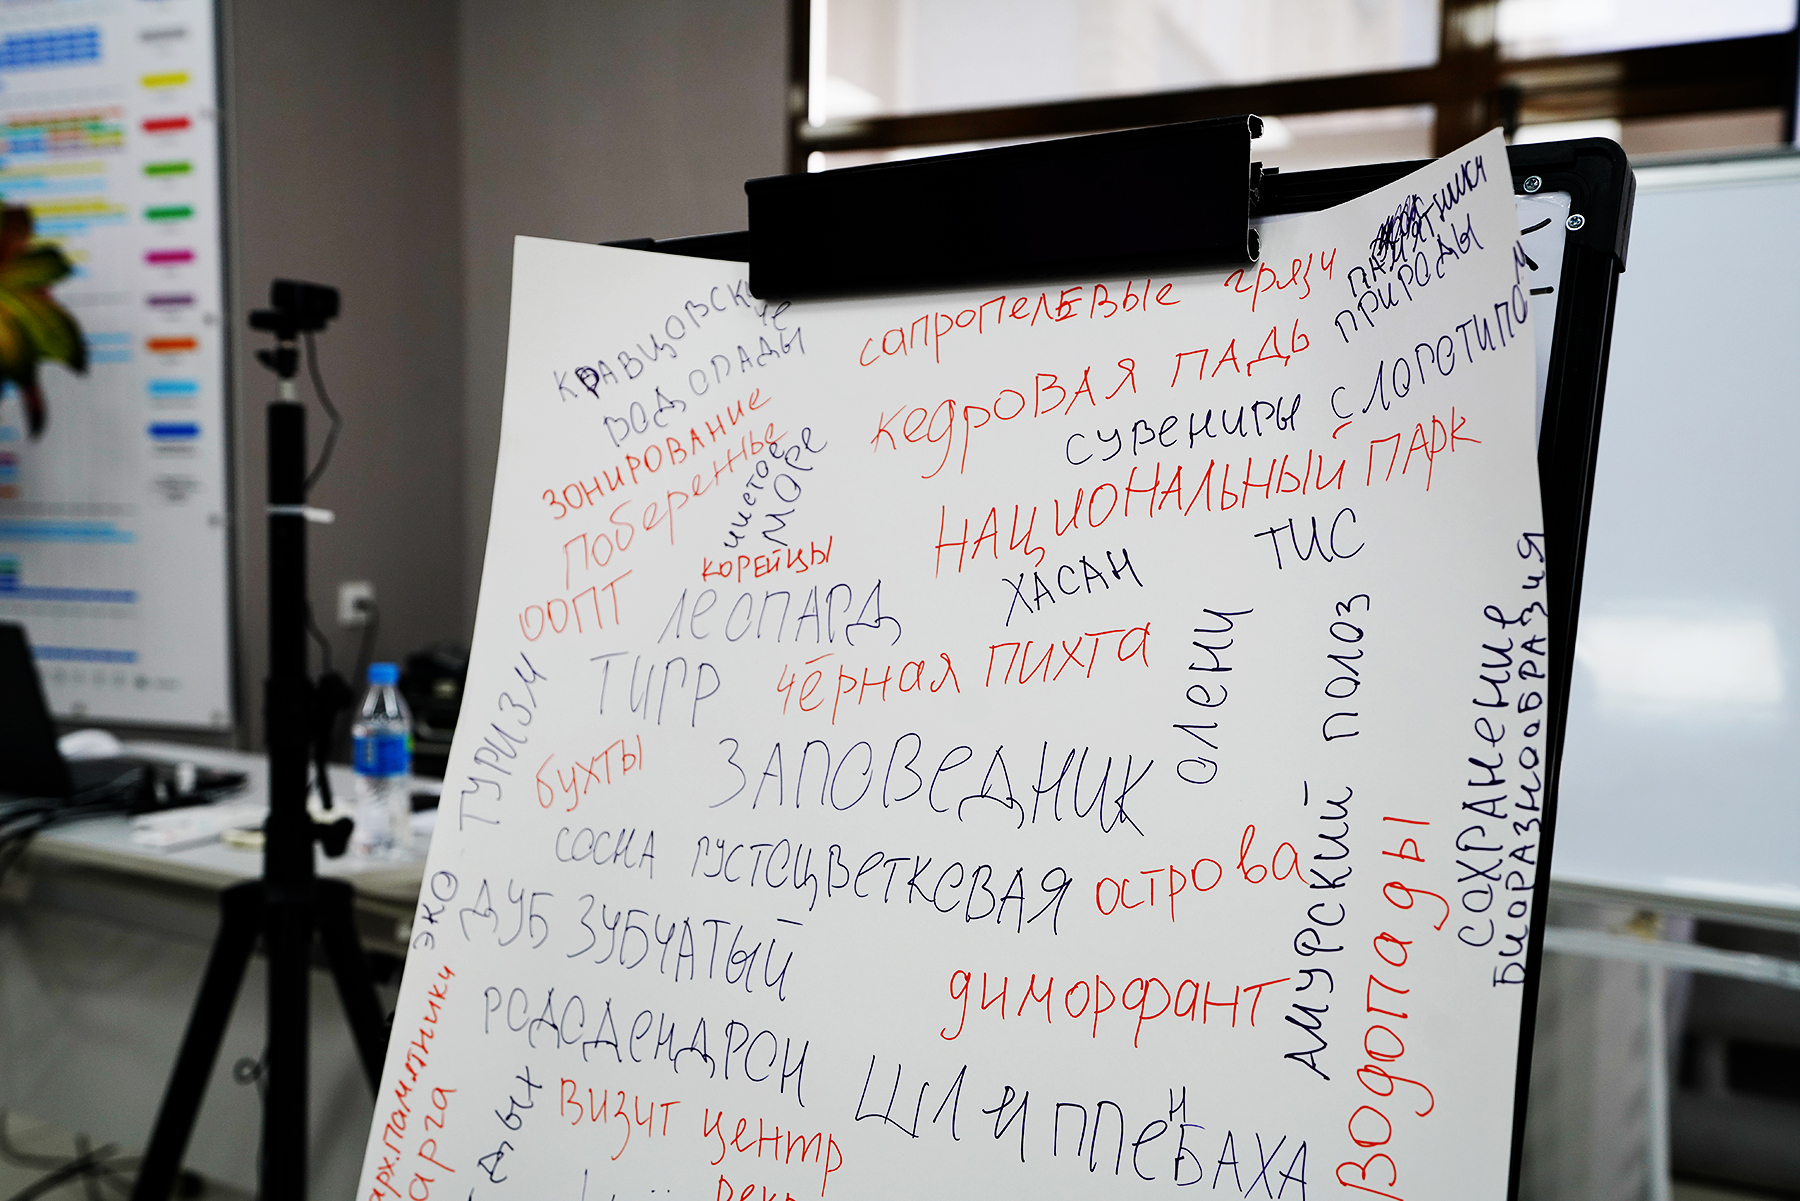 КРАВЦОВСКИ
ЧЕ
ВОДОПАДЫ
сапропелЕвые грязи
ПАМЯТНИКИ
ПРИРОДЫ
ЗОНИРОВАНИЕ
кедроВАЯ ПАДЬ
ПОбережье
чистое
МОРЕ
СУВЕНИРЫ С ЛОГОТИПОМ
НАЦИОНАЛЬНЫЙ ПАРК
КОРЕЙЦЫ
ООПТ
ЛЕОПАРД
ХАСАН
ТИС
ТИГР
чёрная ПИХТА
ОЛЕНИ
АМУРСКИЙ ПОЛОЗ
СОХРАНЕНИЕ
БИОРАЗНООБРАЗИЯ
ЭКО-ТУРИЗМ
бухты
ЗАПОВЕДНИК
СОСНА ГУСТОЦВЕТКОВАЯ
острова
ДУБ ЗУБЧАТЫЙ
Водопады
диморфант
РОДОДЕНДРОН
арх.Памятники
арга
ВИЗИТ центр
ШЛИППЕНБАХА